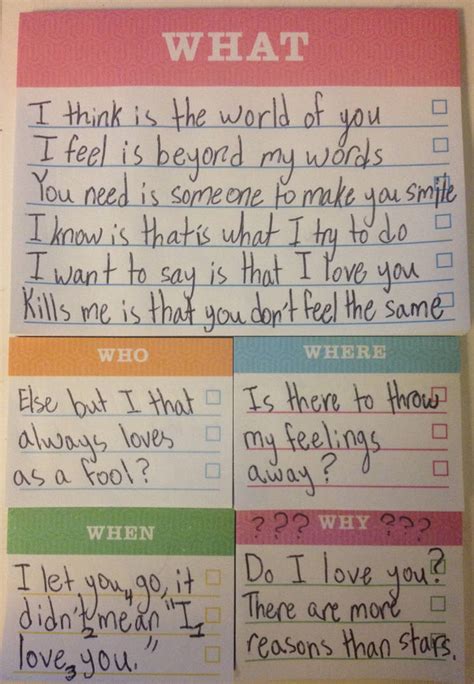 WHAT
I think is the world of you
I feel is beyond my words
You need is someone to make you smile
I know is that is what I try to do
I want to say is that I love you
Kills me is that you don't feel the same
WHO
Else but I that
always loves
as a fool?
WHERE
Is there to throw
my feelings
away?
WHEN
I let you 4 go, it
didn't 2 mean "I 1
love 3 you."
??? WHY ???
Do I love you?
There are more
reasons than stars.